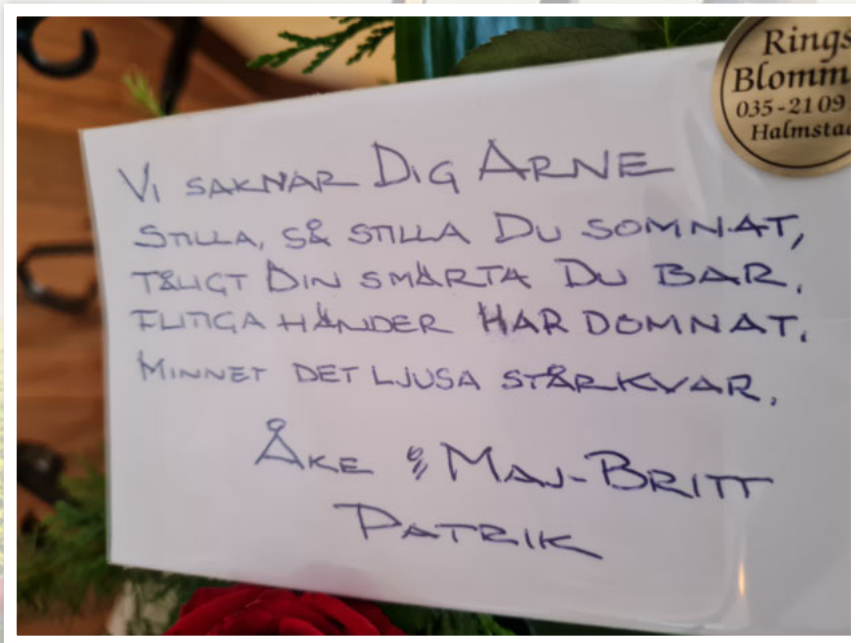 Rings
Blomm
035-2109
Halmstad
VI SAKNAR DIG ARNE
STILLA, SÅ STILLA DU SOMNAT,
TÅLIGT DIN SMÄRTA DU BAR.
FLITIGA HÄNDER HAR DOMNAT.
MINNET DET LJUSA STÅR KVAR.
ÅKE & MAJ-BRITT
PATRIK